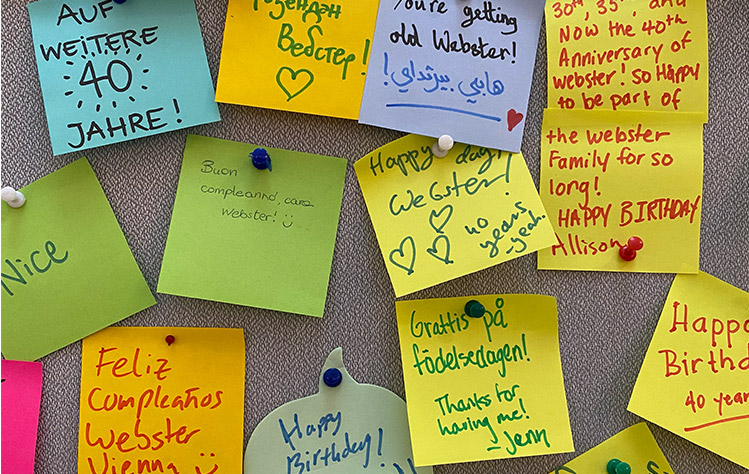 AUF
WEITERE
40
JAHRE!
Вебстер!
You're getting
old Webster!
هابي بيرثداي!
30th, 35th, and
Now the 40th
Anniversary of
webster! SO HAPPY
to be part of
the webster
Family for so
long!
HAPPY BIRTHDAY
Allison
Nice
Buon
compleanno, cara
Webster! :)
Happy day,
Webster!
40
years
-yeah.
Feliz
Cumpleaños
Webster
Vienna
Happy
Birthday!
Grattis på
födelsedagen!
Thanks for
having me!
-Jenn
Birthd
40 year